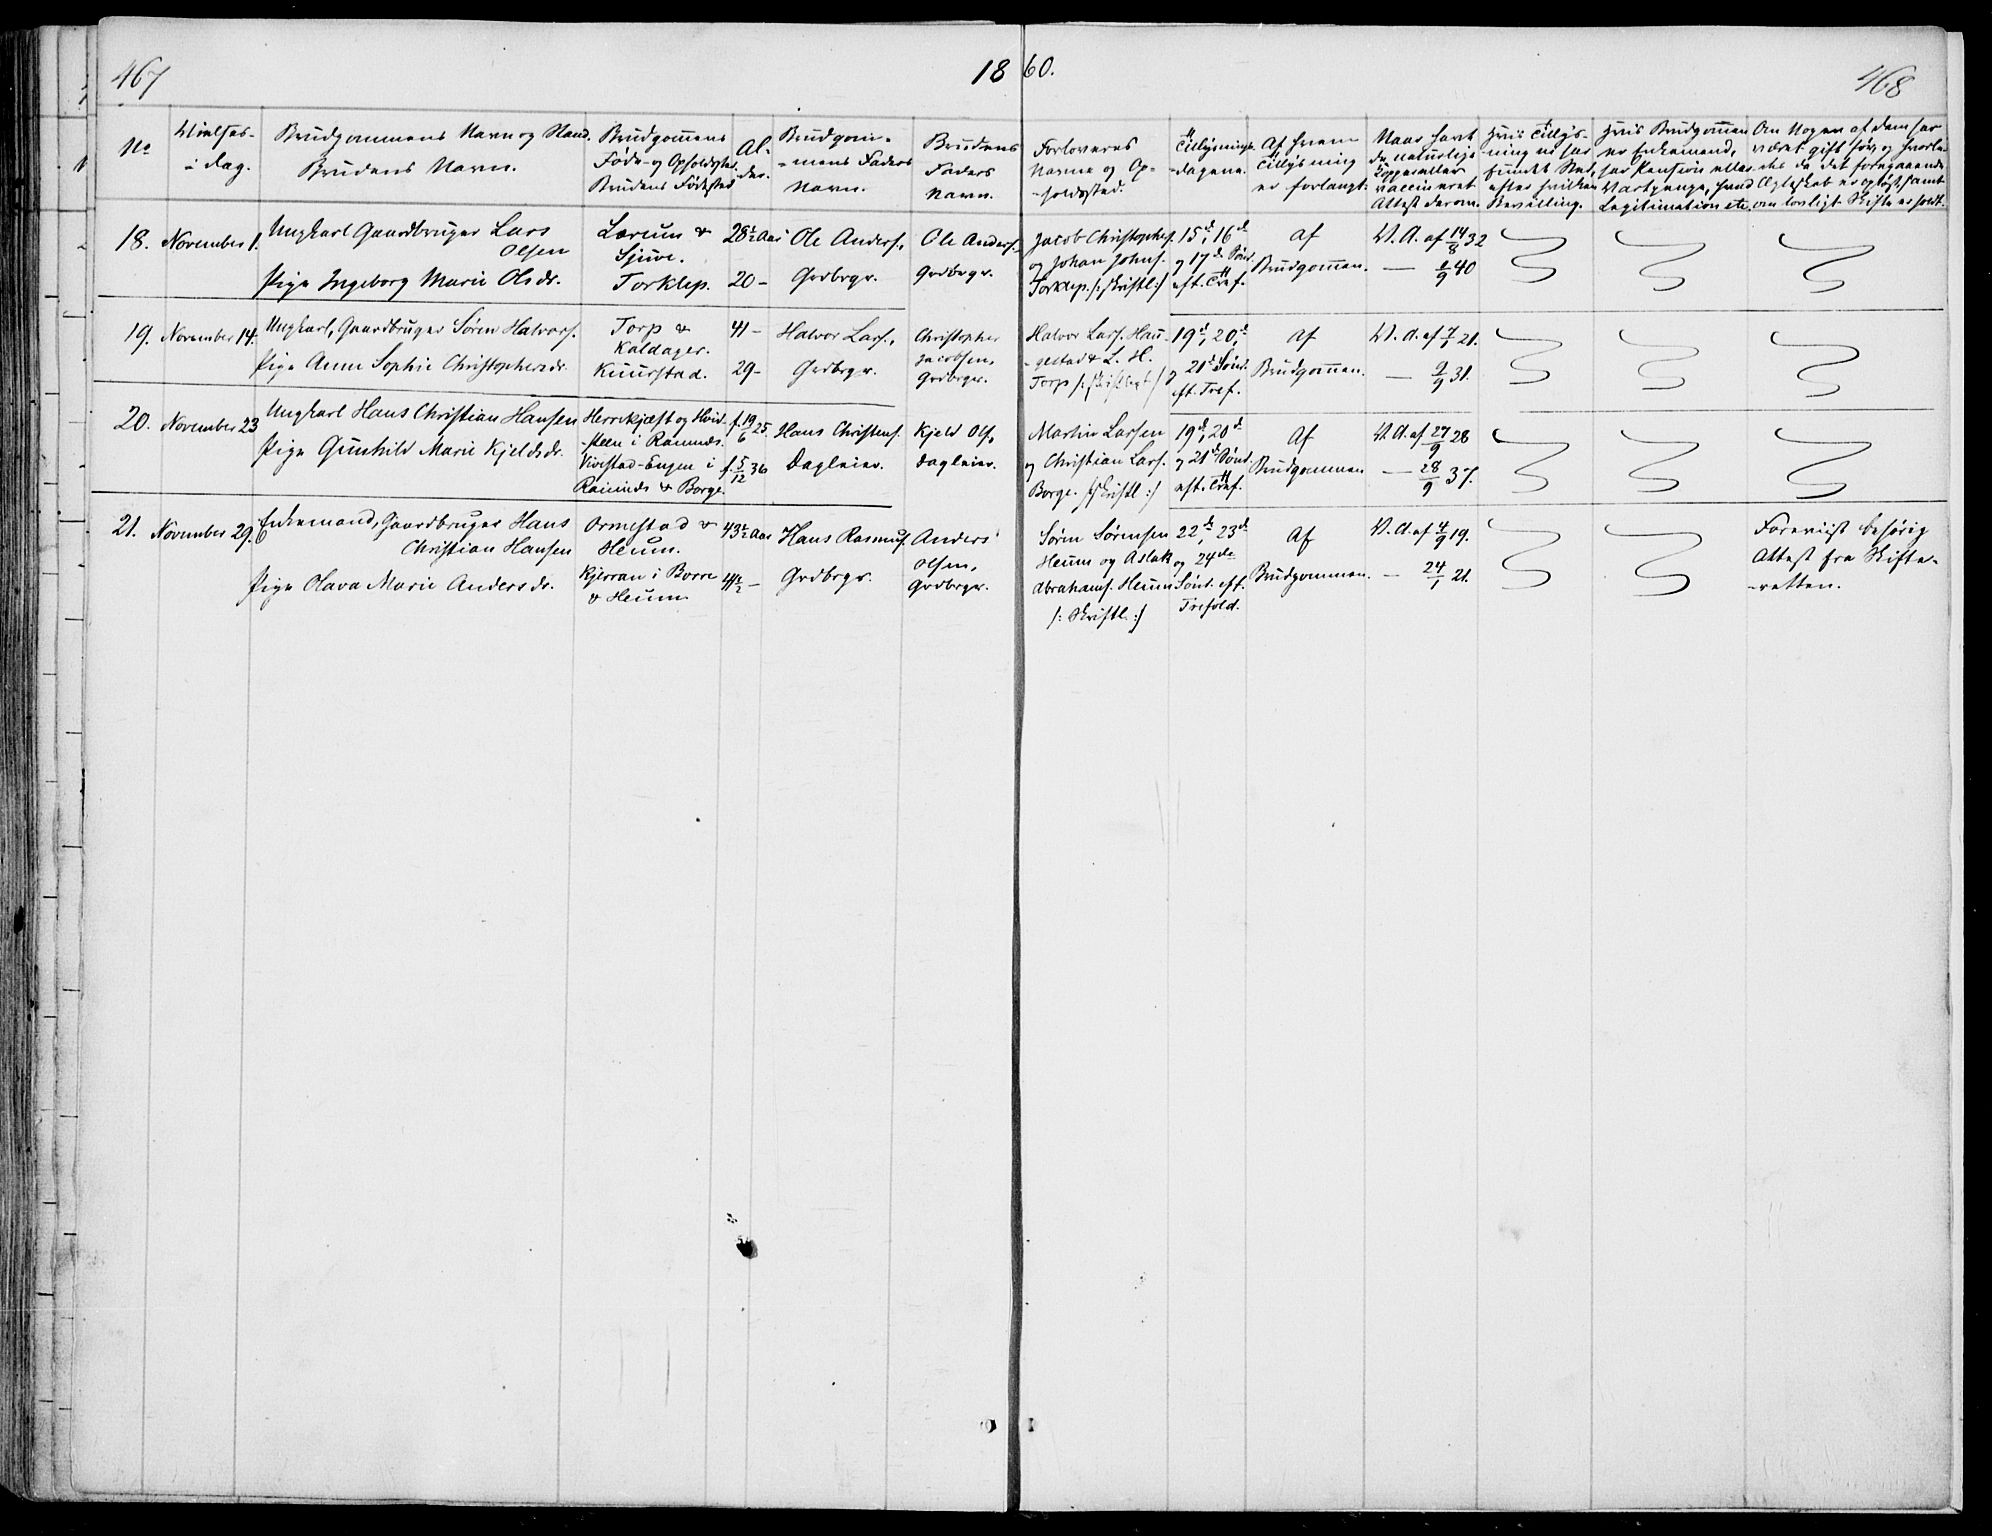 467
1860.
468
No
Vielses-
dag.
Brudgommens Navn og Stand.
Brudens Navn.
Brudgoms
Føde- og Opholdssted.
Brudens Fødested
Al-
der.
Brudgom-
-mens Faders
Navn.
Brudens
Faders
Navn.
Forloveres
Navne og Op-
-holdssted.
Tillysnings-
-dagene.
Af hvem
Tillysning
er forlangt.
Naar havt
de naturlige
Kopper eller
vaccineret
Attest derom.
Hvis Tillys-
-ning ei har
fundet Sted,
efter hvilken
Bevilling.
Hvis Brudgommen
er Enkemand,
Legitimation etc.
Om Nogen af dem har
været gift før, og hvorle-
-des da det foregaaende
Ægteskab er opløst, samt
om lovligt Skifte er holdt.
18.
November 1.
Ungkarl Gaardbruger Lars
Olsen
Pige Ingeborg Marie Olsdr.
Lerum &
Sjuve.
Torklep.
28½ Aar
20 –
Ole Anders.,
Grdbrgr.
Ole Anders.
Grdbrgr.
Jacob Christophers.
og Johan Johns.
Torklep. /: Skriftl :/
15d, 16d
og 17d Sønd.
eft. Tref.
Af
Brudgommen.
V. A. af 14/8 32
— 1/9 40
19.
November 14.
Ungkarl, Gaardbruger Søren Halvors.
Pige Anne Sophie Christophersdr.
Torp &
Kaldager.
Kuurstad.
41 –
29 –
Halvor Lars.,
Grdbrgr.
Christopher
Jacobsen,
Grdbrger.
Halvor Lars. Hau-
-gestad & L. H.
Torp /: Skriftligt :/
19d, 20d
og 21d Sønd.
eft. Tref.
Af
Brudgommen.
V. A. af 7/1 21.
— 9/9 31.
20.
November 23
Ungkarl Hans Christian Hansen
Pige Gunhild Marie Kjeldsdr.
Herrekjæft og Hvid-
-steen i Ramnæs.
Vivestad-Engen i
Ramnæs & Borge.
f. 19/6 25.
f. 5/12 36
Hans Christens.
Dagleier.
Kjeld Ols.
Dagleier.
Martin Larsen
og Christian Lars.
Borge. /: Skriftl :/
19d, 20d
og 21d Sønd.
eft. Tref.
Af
Brudgommen
V. A. af 27/9 28
— 28/9 37.
21.
November 29.
Enkemand, Gaardbruger Hans
Christian Hansen
Pige Olava Marie Andersdr.
Ormestad &
Heum.
Kjerran i Borre
& Heum
43½ Aar
41½ –
Hans Rasmus.
Grdbrgr.
Anders
Olsen,
Grdbrger.
Søren Sørensen
Heum og Aslak
Abrahams. Heum
/: Skriftl. :/
22de, 23d
og 24de
Sønd. eft.
Trefold.
Af
Brudgommen.
V. A. af 4/9 19.
— 24/1 21.
Foreviist behørig
Attest fra Skifte-
-retten.